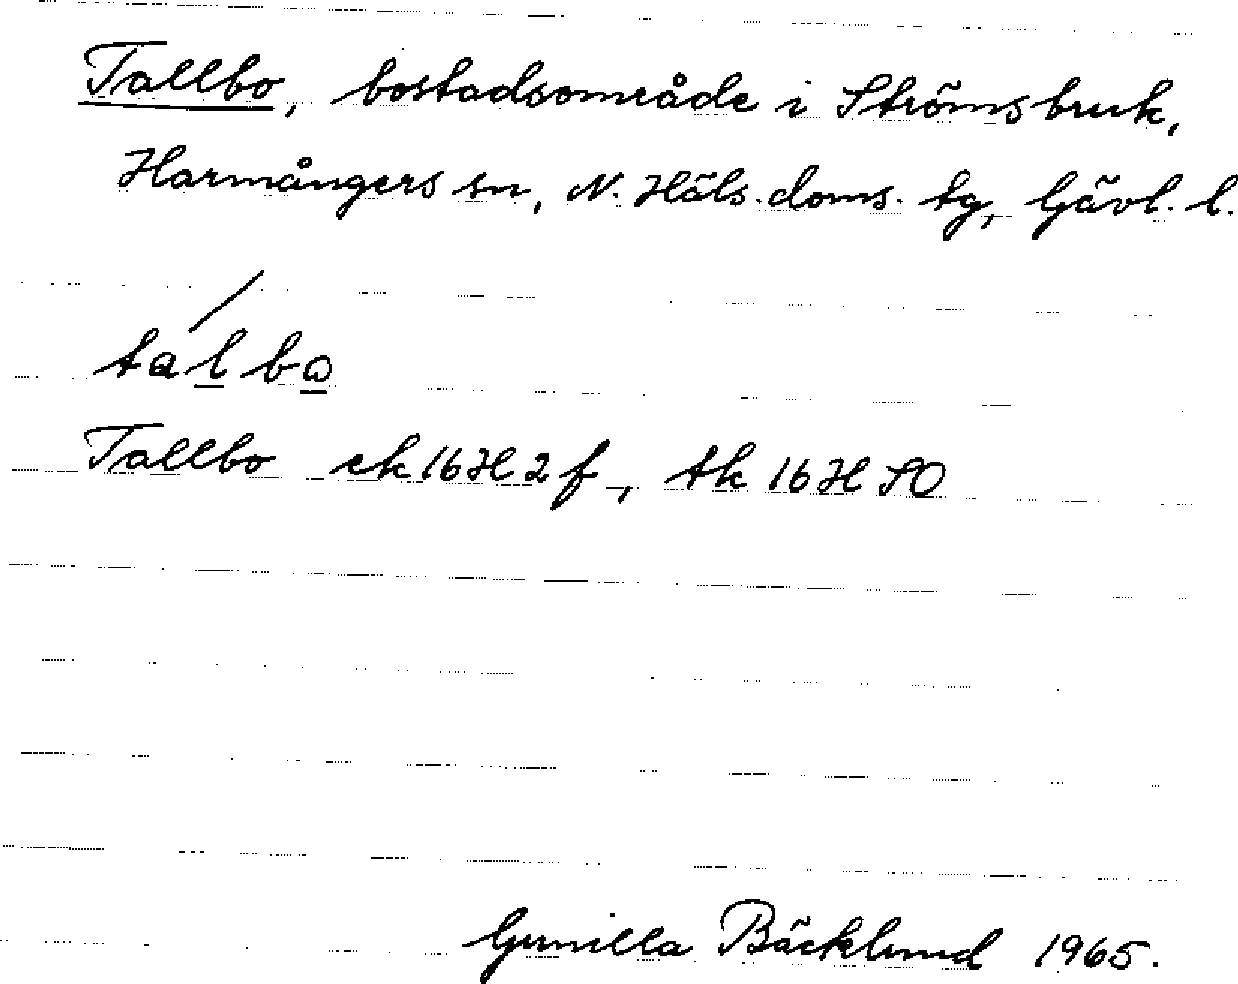 Tallbo, bostadsområde i Strömsbruk,
Harmångers sn, N. Häls. doms. tg, Gävl. l.
talbω
Tallbo ek 16H 2f, tk 16H SO
Gunilla Bäcklund 1965.